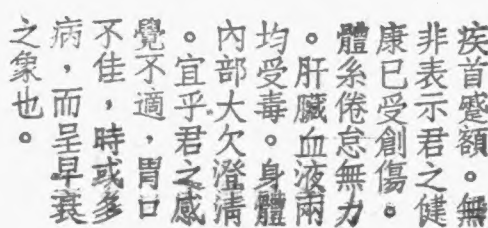 疾首蹙額。無
非表示君之健
康已受創傷。
體系倦怠無力
。肝臟血液兩
均受毒。身體
內部大欠澄清
。宜乎君之感
覺不適，胃口
不佳，時或多
病，而呈早衰
之象也。